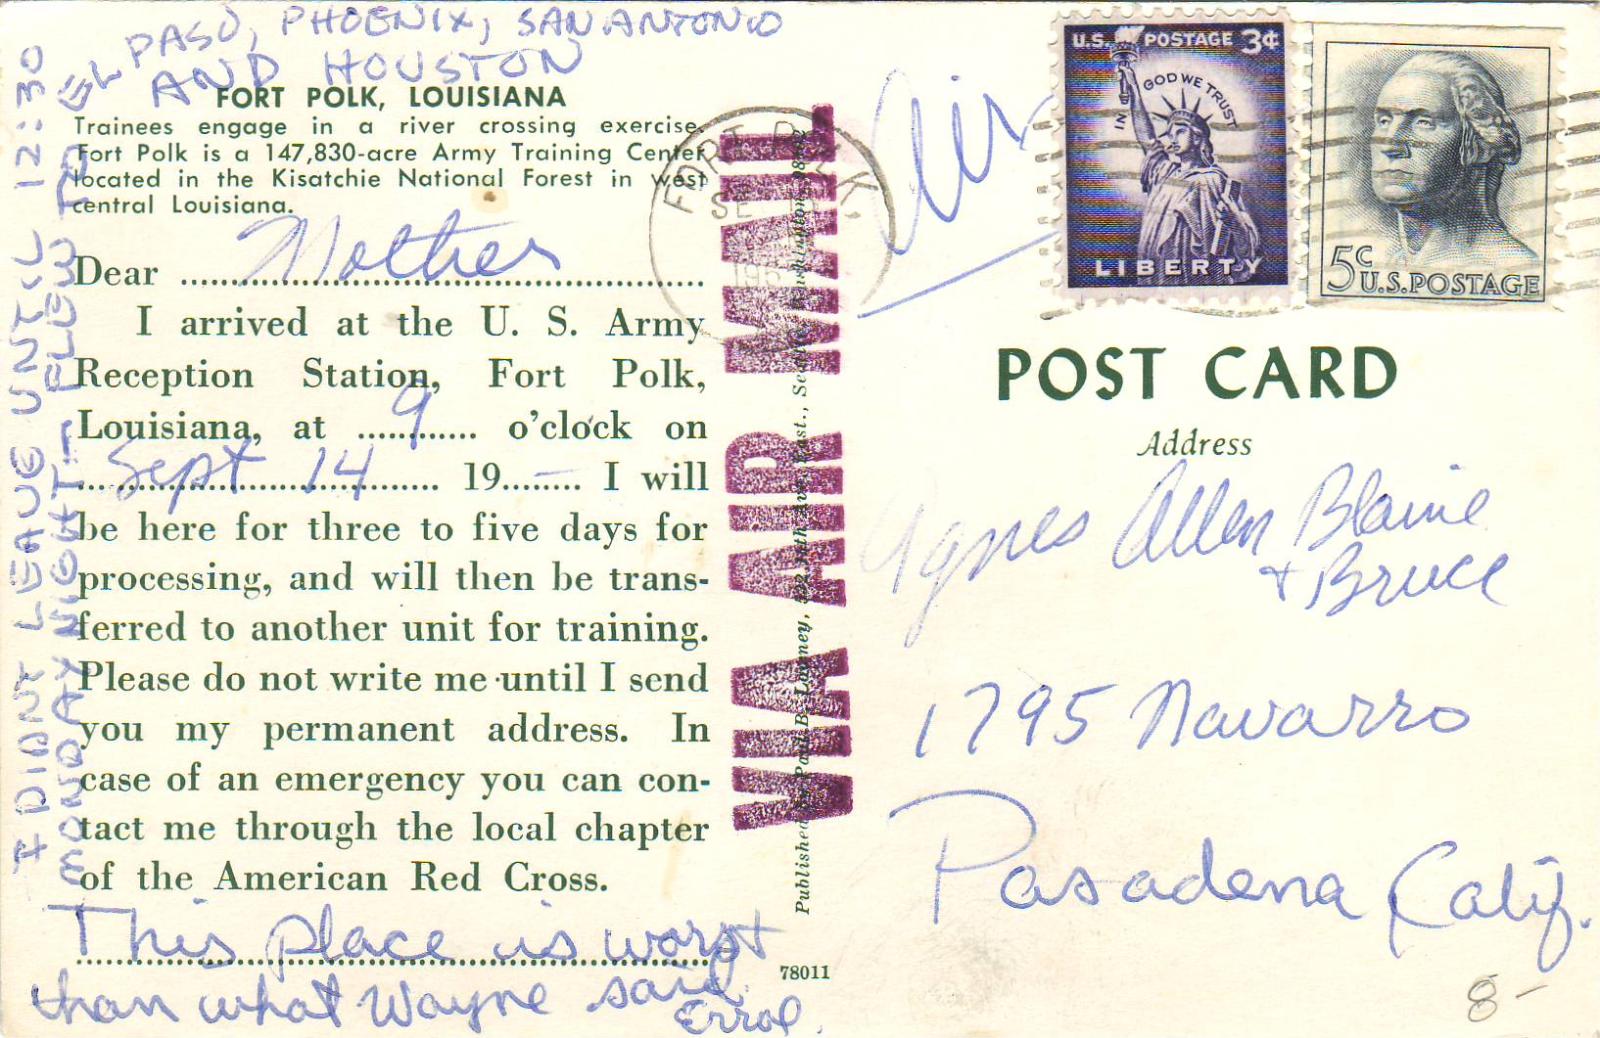 I DIDNT LEAVE UNTIL 12:30
MONDAY NIGHT - FLEW TO EL PASO, PHOENIX, SAN ANTONIO
AND HOUSTON
FORT POLK, LOUISIANA
Trainees engage in a river crossing exercise.
Fort Polk is a 147,830-acre Army Training Center
located in the Kisatchie National Forest in west
central Louisiana.
Dear Mother
I arrived at the U. S. Army
Reception Station, Fort Polk,
Louisiana, at 9 o'clock on
Sept 14 19 — I will
be here for three to five days for
processing, and will then be trans-
ferred to another unit for training.
Please do not write me until I send
you my permanent address. In
case of an emergency you can con-
tact me through the local chapter
of the American Red Cross.
This place is worst
than what Wayne said.
Errol.
VIA AIR MAIL
Published by Paul B. Lowney, Seattle
78011
FORT POLK,
SE
196
Air
U.S. POSTAGE 3¢
IN GOD WE TRUST
LIBERTY
5c
U.S. POSTAGE
POST CARD
Address
Agnes Allen Blaine
+ Bruce
1795 Navarro
Pasadena Calif.
8-